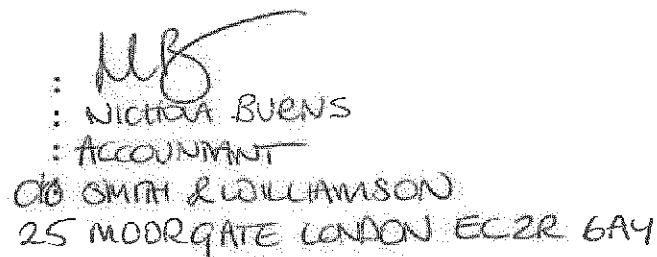 : NB
: NICHOLA BURNS
: ACCOUNTANT
C/O SMITH & WILLIAMSON
25 MOORGATE LONDON EC2R 6AY